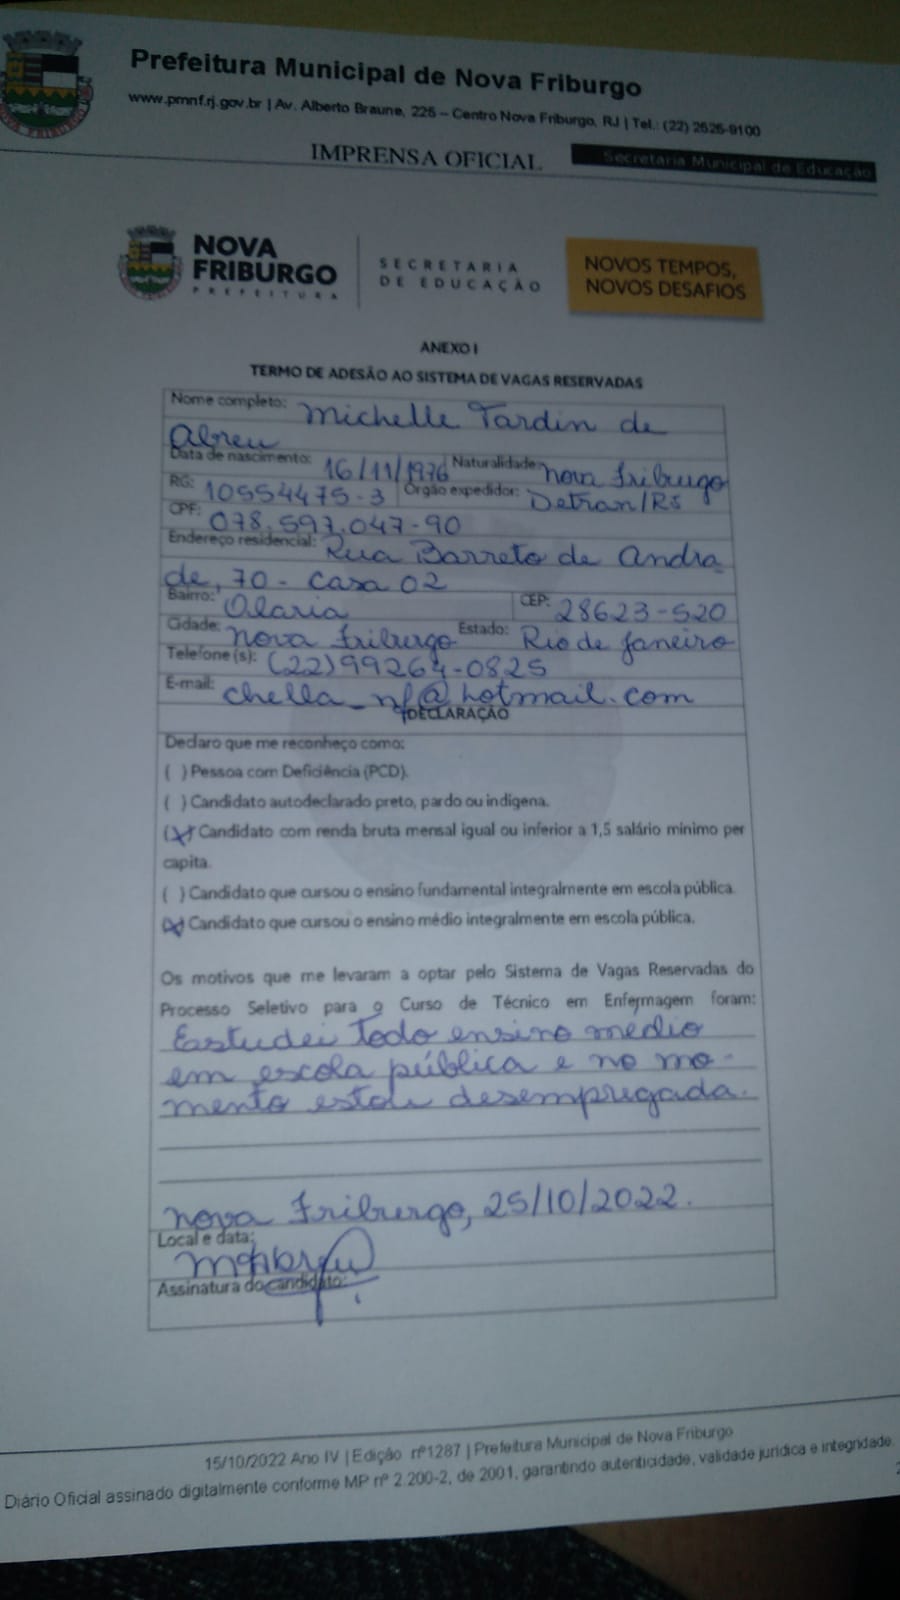 Prefeitura Municipal de Nova Friburgo
www.pmnf.rj.gov.br | Av. Alberto Braune, 225 – Centro Nova Friburgo, RJ | Tel.: (22) 2525-9100
IMPRENSA OFICIAL
Secretaria Municipal de Educação
NOVA FRIBURGO
PREFEITURA
SECRETARIA
DE EDUCAÇÃO
NOVOS TEMPOS,
NOVOS DESAFIOS
ANEXO I
TERMO DE ADESÃO AO SISTEMA DE VAGAS RESERVADAS
Nome completo: Michelle Tardin de
Abreu
Data de nascimento: 16/11/1976 Naturalidade: Nova Friburgo
RG: 10554475-3 Órgão expedidor: Detran/RJ
CPF: 078.597.047-90
Endereço residencial: Rua Barreto de Andra
de, 70 - casa 02
Bairro: Olaria CEP: 28623-520
Cidade: Nova Friburgo Estado: Rio de Janeiro
Telefone(s): (22) 99264-0825
E-mail: chella_nf@hotmail.com
DECLARAÇÃO
Declaro que me reconheço como:
( ) Pessoa com Deficiência (PCD).
( ) Candidato autodeclarado preto, pardo ou indígena.
(X) Candidato com renda bruta mensal igual ou inferior a 1,5 salário mínimo per
capita.
( ) Candidato que cursou o ensino fundamental integralmente em escola pública.
(X) Candidato que cursou o ensino médio integralmente em escola pública.
Os motivos que me levaram a optar pelo Sistema de Vagas Reservadas do
Processo Seletivo para o Curso de Técnico em Enfermagem foram:
Estudei todo ensino médio
em escola pública e no mo-
mento estou desempregada.
Nova Friburgo, 25/10/2022.
Local e data:
Assinatura do candidato:
15/10/2022 Ano IV | Edição nº1287 | Prefeitura Municipal de Nova Friburgo
Diário Oficial assinado digitalmente conforme MP nº 2.200-2, de 2001, garantindo autenticidade, validade jurídica e integridade.